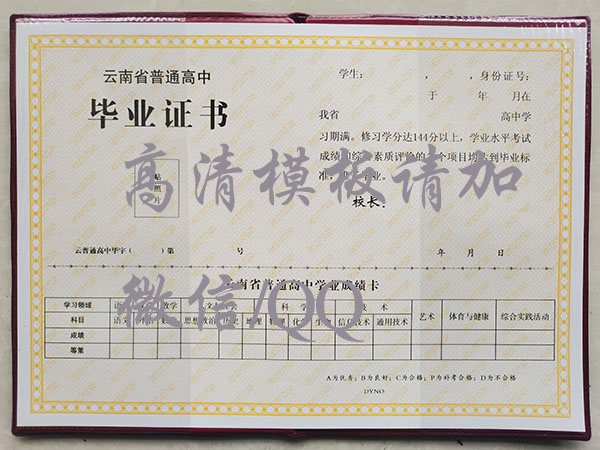 云南省普通高中
毕业证书
贴照片
云普通高中毕字( )第 号
学生: , ,身份证号:
于 年 月在
我省 高中学
习期满。修习学分达144分以上,学业水平考试
成绩和综合素质评价的各个项目均达到毕业标
准,
业。
校长:
年 月 日
高清模板请加
微信/QQ
云南省普通高中学业成绩卡
学习领域 数学 科 学 技 术 艺术 体育与健康 综合实践活动
科目 语文 思想政治 历史 地理 物理 化学 生物 信息技术 通用技术
成绩
等第
A为优秀;B为良好;C为合格;P为补考合格;D为不合格
DYNO: